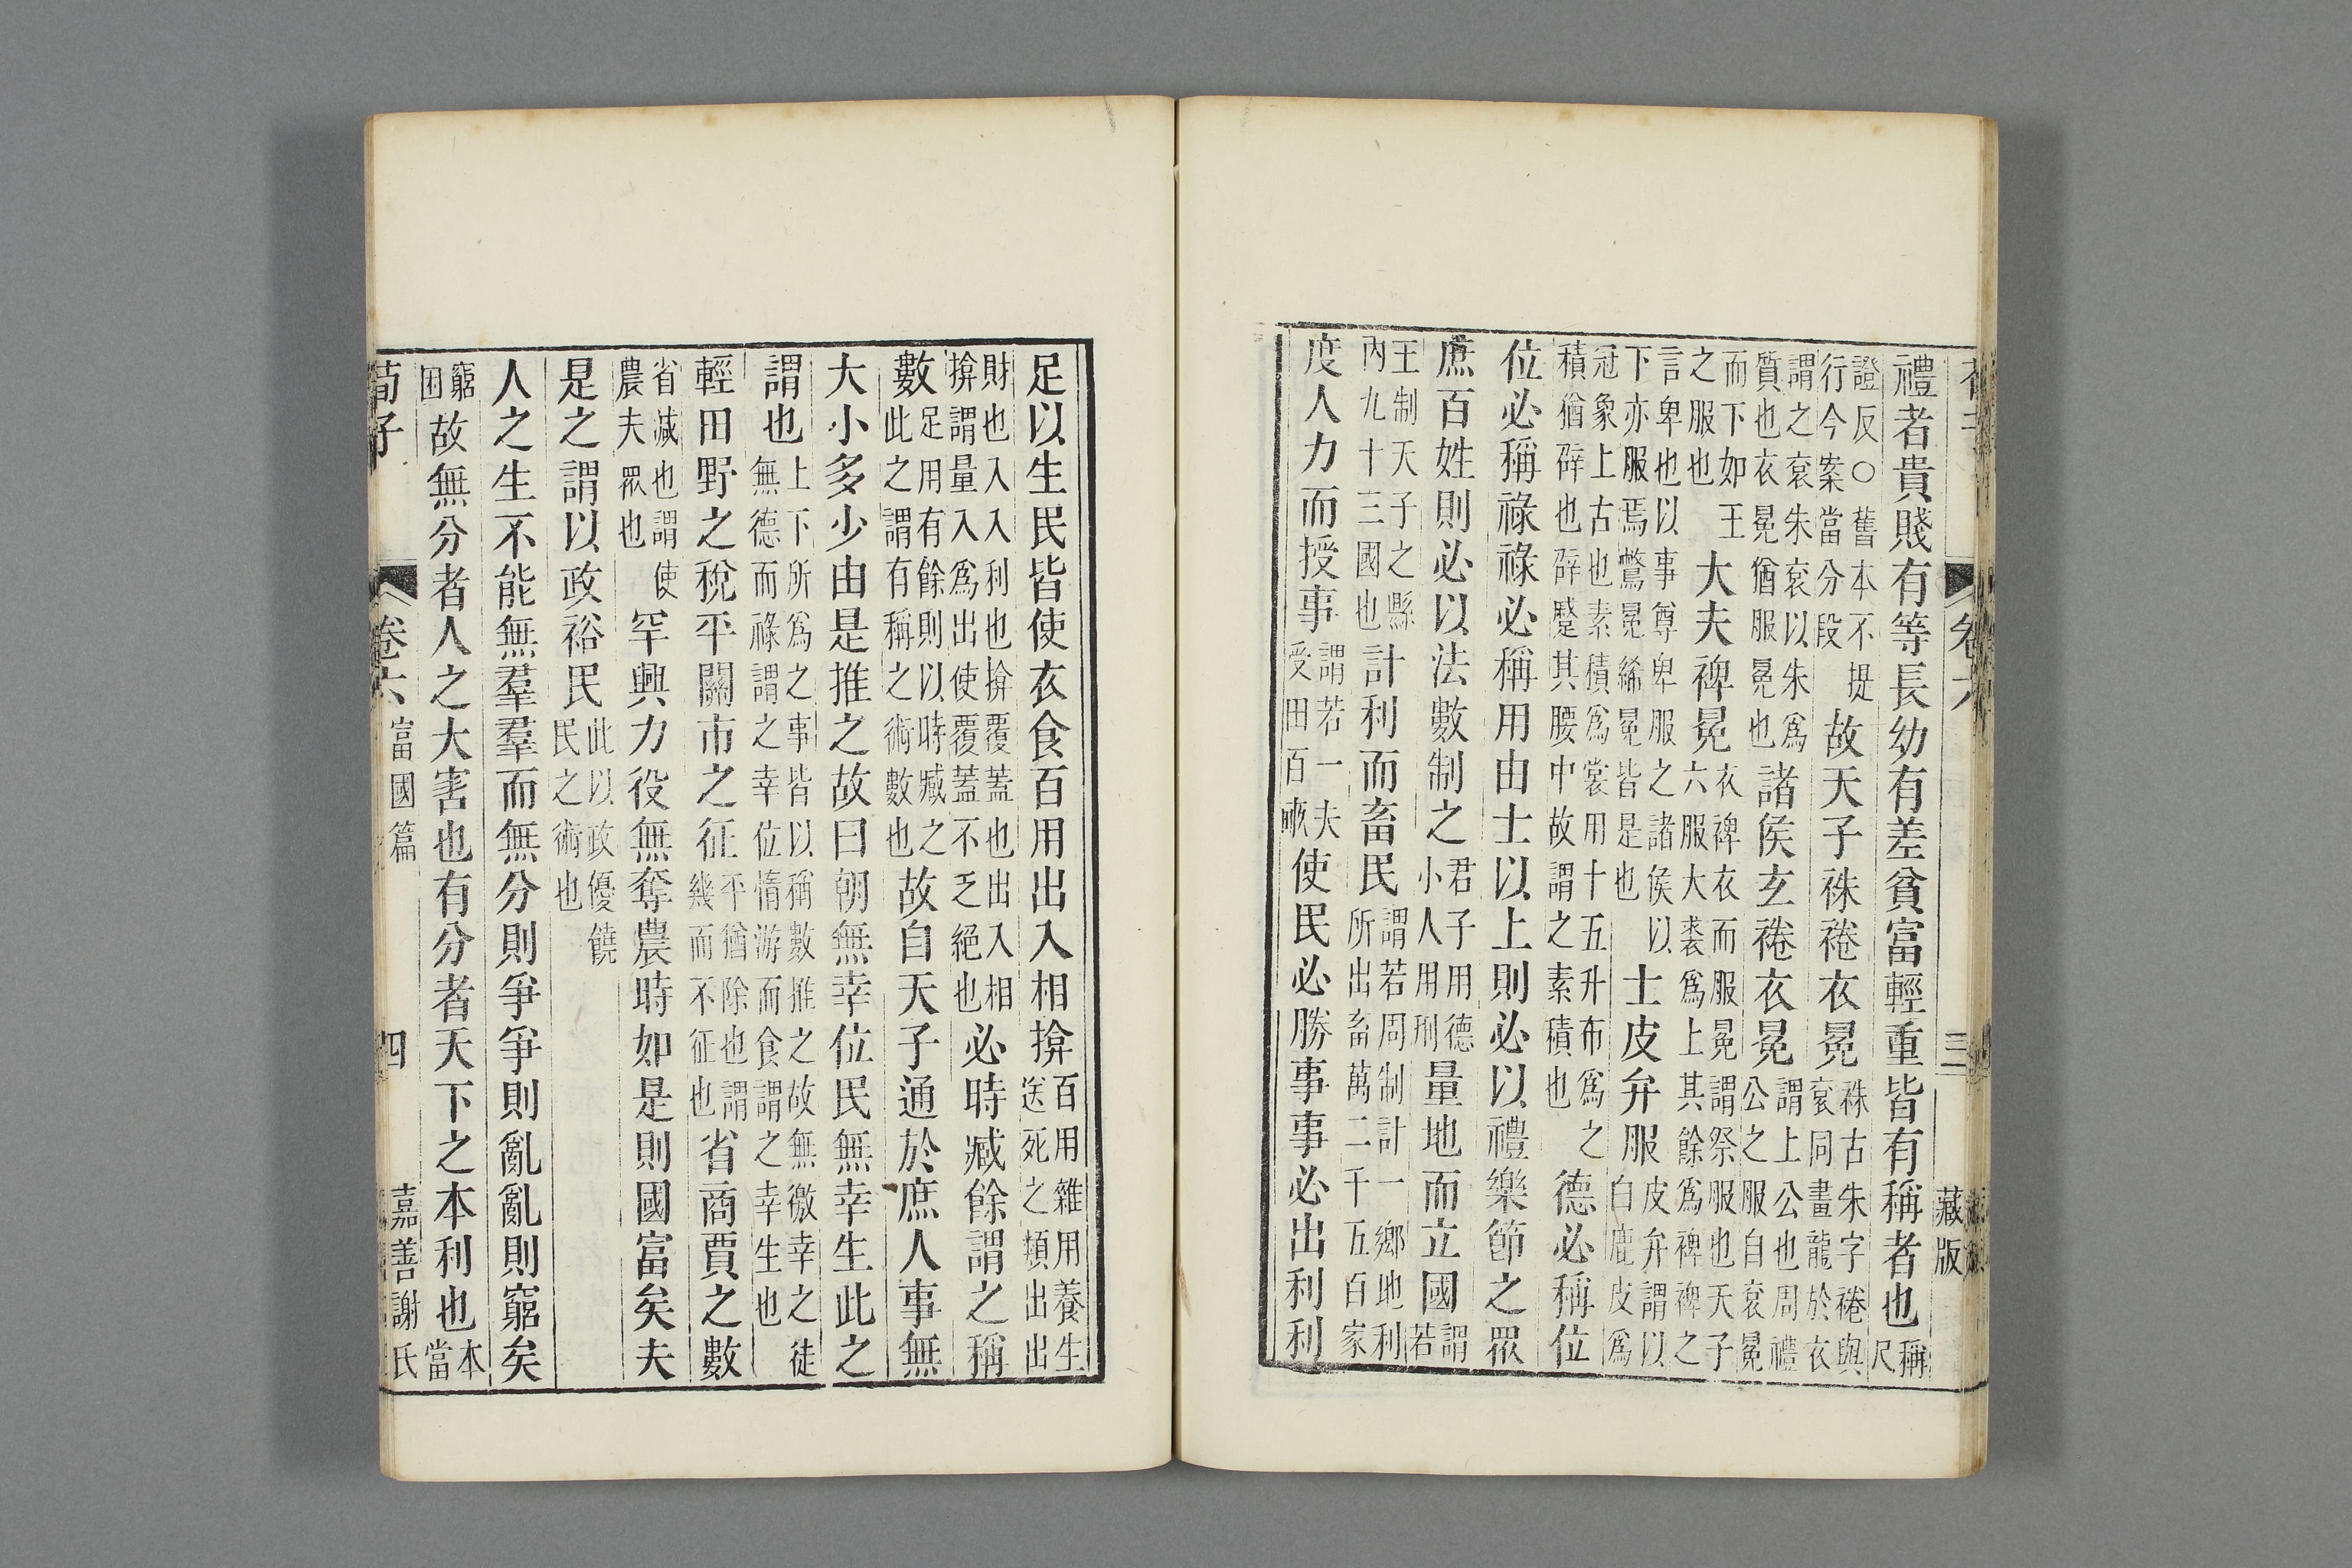 禮者貴賤有等長幼有差貧富輕重皆有稱者也稱尺
證反○舊本不提行今案當分段故天子袾裷衣冕袾古朱字裷與袞同畫龍於衣
謂之袞朱袞以朱爲質也衣冕猶服冕也諸侯玄裷衣冕謂上公也周禮公之服自袞冕
而下如王之服也大夫裨冕衣裨衣而服冕謂祭服也天子六服大裘爲上其餘爲裨裨之
言卑也以事尊卑服之諸侯以下亦服焉鷩冕絺冕皆是也士皮弁服皮弁謂以白鹿皮爲
冠象上古也素積爲裳用十五升布爲之積猶辟也辟蹙其腰中故謂之素積也德必稱位
位必稱祿祿必稱用由士以上則必以禮樂節之眾
庶百姓則必以法數制之君子用德小人用刑量地而立國謂若
王制天子之縣內九十三國也計利而畜民謂若周制計一鄉地利所出畜萬二千五百家
度人力而授事謂若一夫受田百畝使民必勝事事必出利利
藏版
足以生民皆使衣食百用出入相揜百用雜用養生送死之類出出
財也入入利也揜覆蓋也出入相揜謂量入爲出使覆蓋不乏絕也必時臧餘謂之稱
數足用有餘則以時臧之此之謂有稱之術數也故自天子通於庶人事無
大小多少由是推之故曰朝無幸位民無幸生此之
謂也上下所爲之事皆以稱數推之故無徼幸之徒無德而祿謂之幸位惰游而食謂之幸生也
輕田野之稅平關市之征平猶除也謂幾而不征也省商賈之數
省減也謂使農夫眾也罕興力役無奪農時如是則國富矣夫
是之謂以政裕民此以政優饒民之術也
人之生不能無羣羣而無分則爭爭則亂亂則窮矣
窮困故無分者人之大害也有分者天下之本利也本當
荀子 卷六富國篇 四 嘉善謝氏